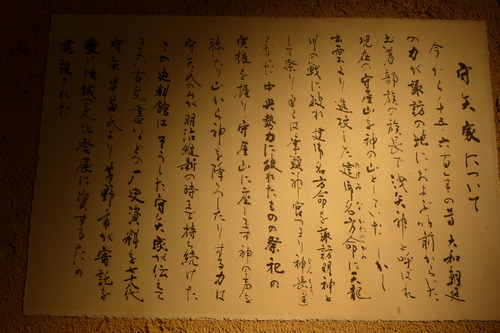 守矢家について
今から千五・六百年の昔 大和朝廷
の力が諏訪の地におよぶ以前からいた
土着部族の族長で洩矢神と呼ばれ
現在の守屋山を神の山としていた しかし
出雲より進攻した建御名方命に天龍
川の戦に破れ 建御名方命を諏訪明神と
して祭り自らは筆頭神官つまり神長と
なった 中央勢力に破れたものの祭祀の
実権を握り守屋山に座します神の声を
聴いたり山から神を降ろしたりする力は
守矢氏のみが明治維新の時まで持ち続けた
この史料館はそうした守矢家が伝えて
きた古文書などの史資料を七十八代
守矢早苗氏より茅野市が寄託を
受け地域の文化発展に資するため
建設された